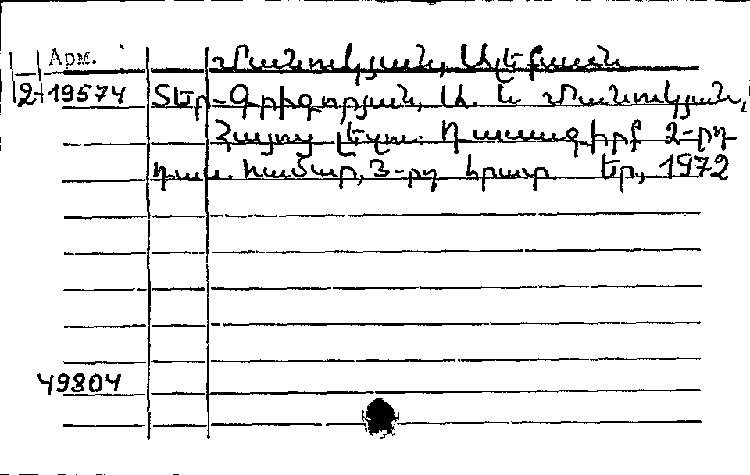 Арм.
Մանուկյան, Ալեքսան
2-19574 Տեր-Գրիգորյան, Ա. և Մանուկյան,
Հայոց լեզու. Դասագիրք 2-րդ
դաս. համար, 3-րդ հրատ. Եր., 1972
49804